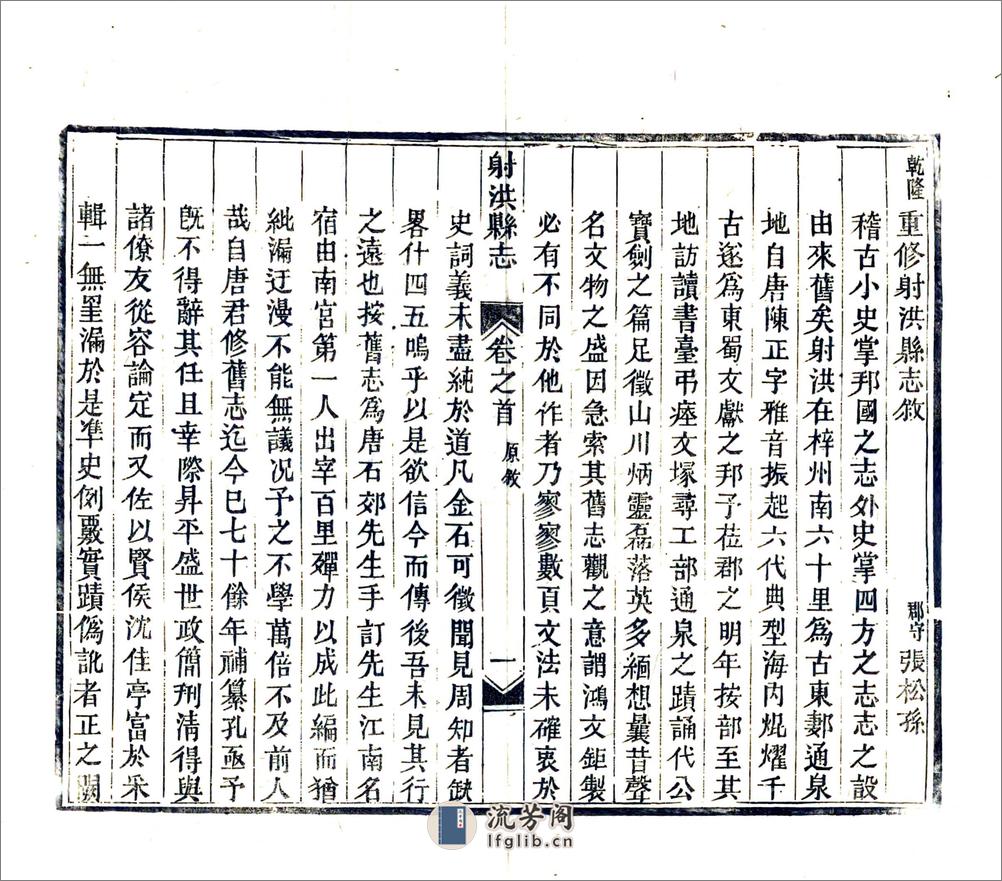 乾隆重修射洪縣志敘
郡守張松孫
稽古小史掌邦國之志外史掌四方之志志之設
由來舊矣射洪在梓州南六十里爲古東鄭通泉
地自唐陳正字雅音振起六代典型海内焜燿千
古遂爲東蜀文獻之邦予莅郡之明年按部至其
地訪讀書臺弔瘞文塚尋工部通泉之蹟誦代公
寶劍之篇足徵山川炳靈磊落英多緬想曩昔聲
名文物之盛因急索其舊志觀之意謂鴻文鉅製
必有不同於他作者乃寥寥數頁文法未確衷於
射洪縣志 卷之首 原敘 一
史詞義未盡純於道凡金石可徵聞見周知者缺
畧什四五嗚乎以是欲信今而傳後吾未見其行
之遠也按舊志爲唐石郊先生手訂先生江南名
宿由南宮第一人出宰百里殫力以成此編而猶
紕漏迂漫不能無議况予之不學萬倍不及前人
哉自唐君修舊志迄今巳七十餘年補纂孔亟予
旣不得辭其任且幸際昇平盛世政簡刑清得與
諸僚友從容論定而又佐以賢侯沈佳亭富於采
輯一無罣漏於是準史例覈實蹟僞訛者正之闕
流芳阁
lfglib.cn